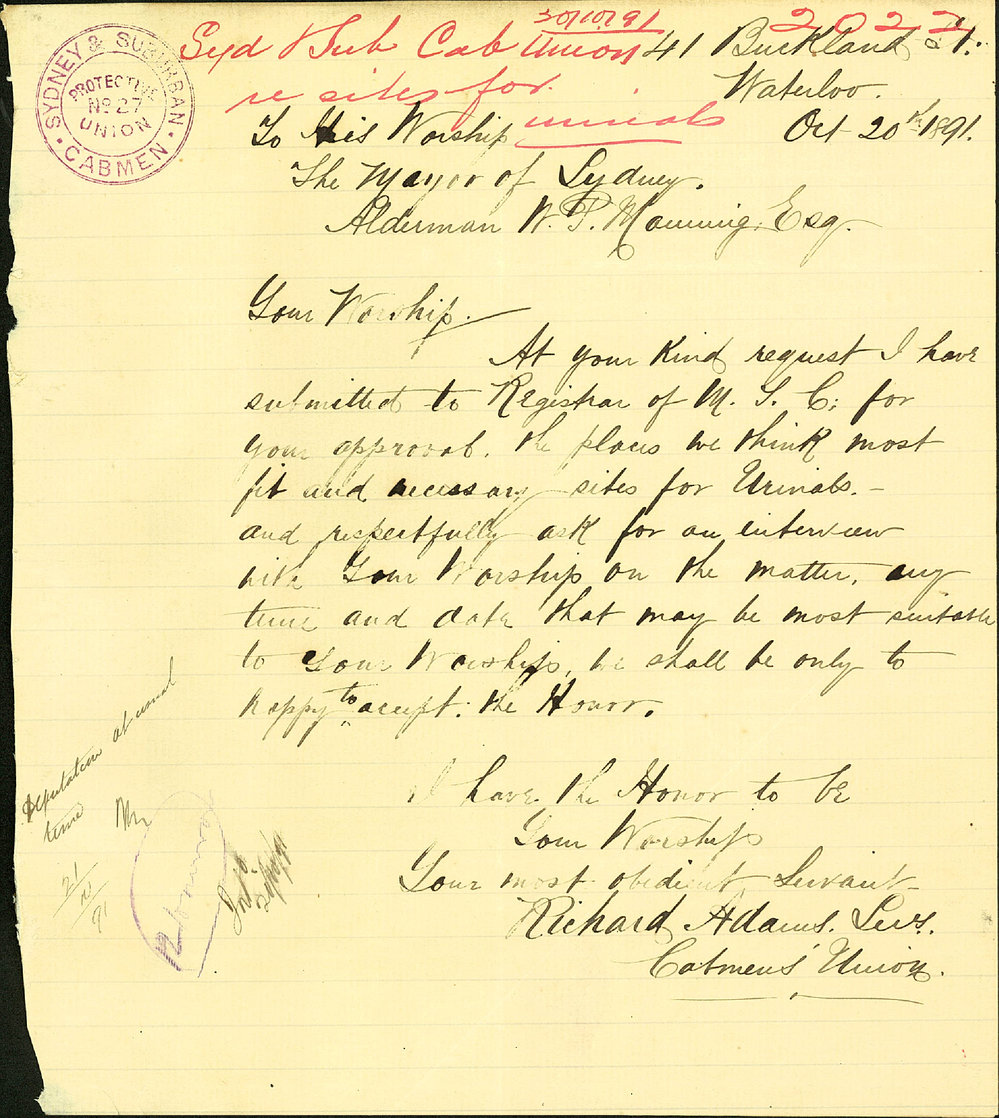 SYDNEY & SUBURBAN
PROTECTIVE
No 27
UNION
CABMEN
30/10/91
2022
Syd & Sub Cab Union
re sites for
urinals
41 Buckland St.
Waterloo.
Oct 20th 1891.
To His Worship
The Mayor of Sydney.
Alderman W. P. Manning, Esq.
Your Worship.
At your Kind request I have
submitted to Registrar of M. S. C; for
your approval. the places we think most
fit and necessary sites for Urinals. –
and respectfully ask for an interview
with Your Worship on the matter, any
time and date that may be most suitable
to Your Worship, we shall be only to
happy to accept. the Honor.
I have the Honor to be
Your Worship
Your most obedient Servant
Richard Adams. Secs.
Cabmens' Union.
Deputation at usual
time
21/
/91